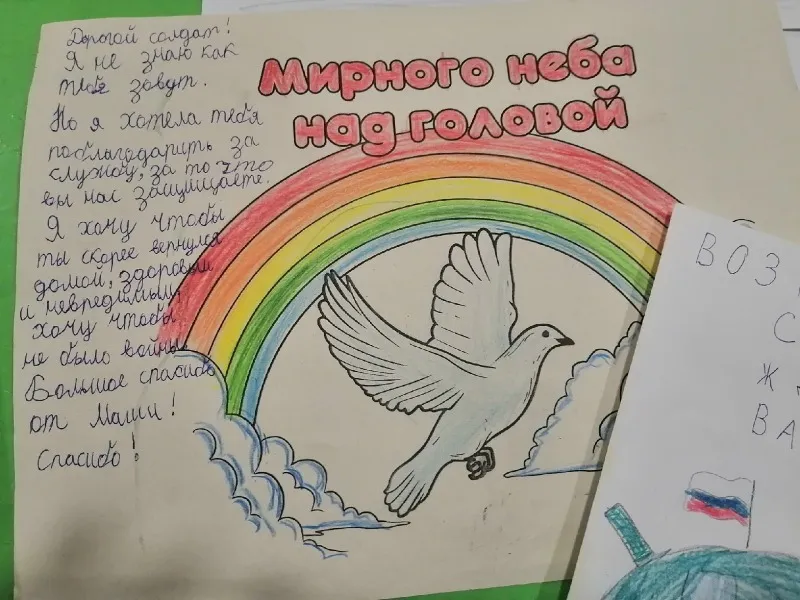 Дорогой солдат!
Я не знаю как
тебя зовут.
Но я хотела тебя
поблагодарить за
службу, за то что
вы нас защищаете.
Я хочу чтобы
ты скорее вернулся
домой, здоровым
и невредимым,
хочу чтобы
не было войны
Большое спасибо
от Маши!
Спасибо!
Мирного неба
над головой
ВОЗ
С
Ж
ВА